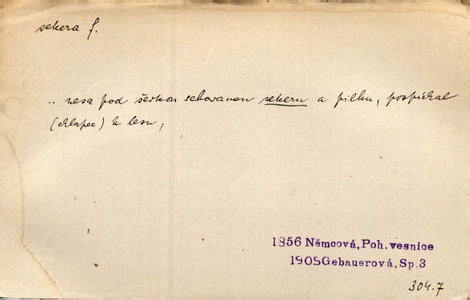 sekera f.
.. nesa pod šerkou schovanou sekeru a pilku, pospíchal
(chlapec) k lesu,
1856 Němcová, Poh. vesnice
1905 Gebauerová, Sp. 3
304.7